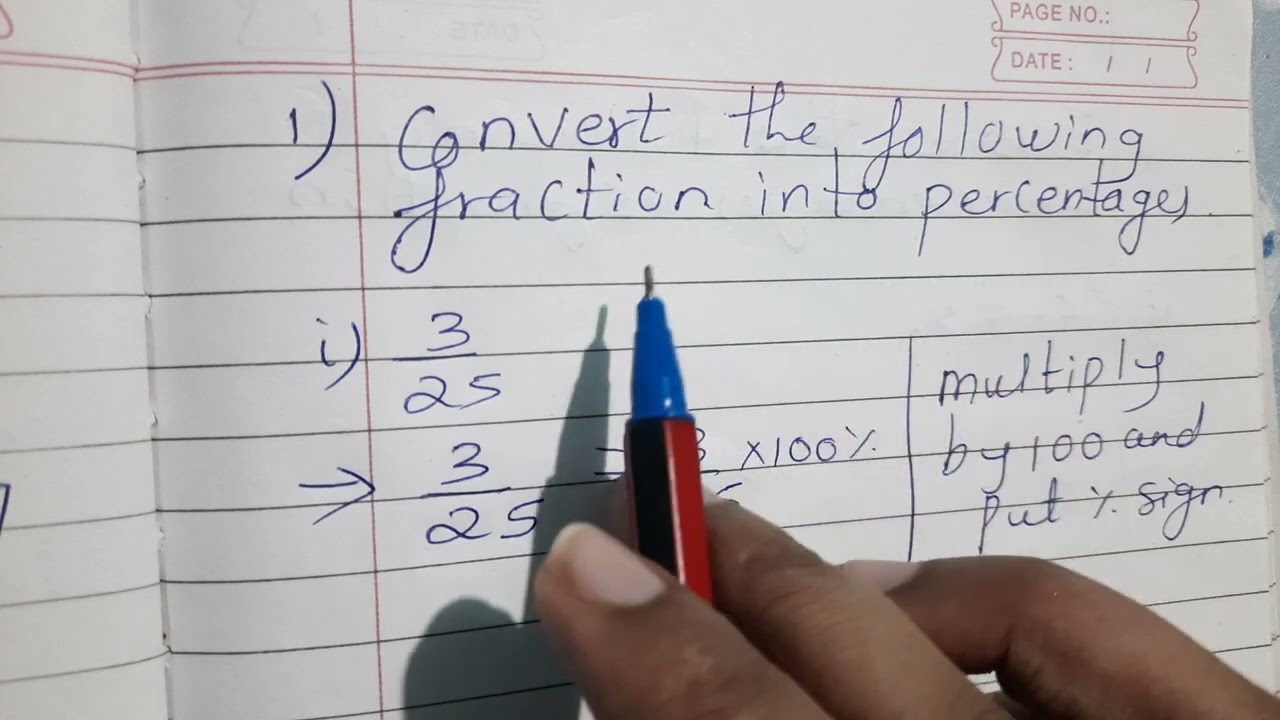 PAGE NO.:
DATE: / /
1) Convert the following
fraction into percentages
i) 3
25
→ 3 = 3 ×100%
25
multiply
by 100 and
put % sign.